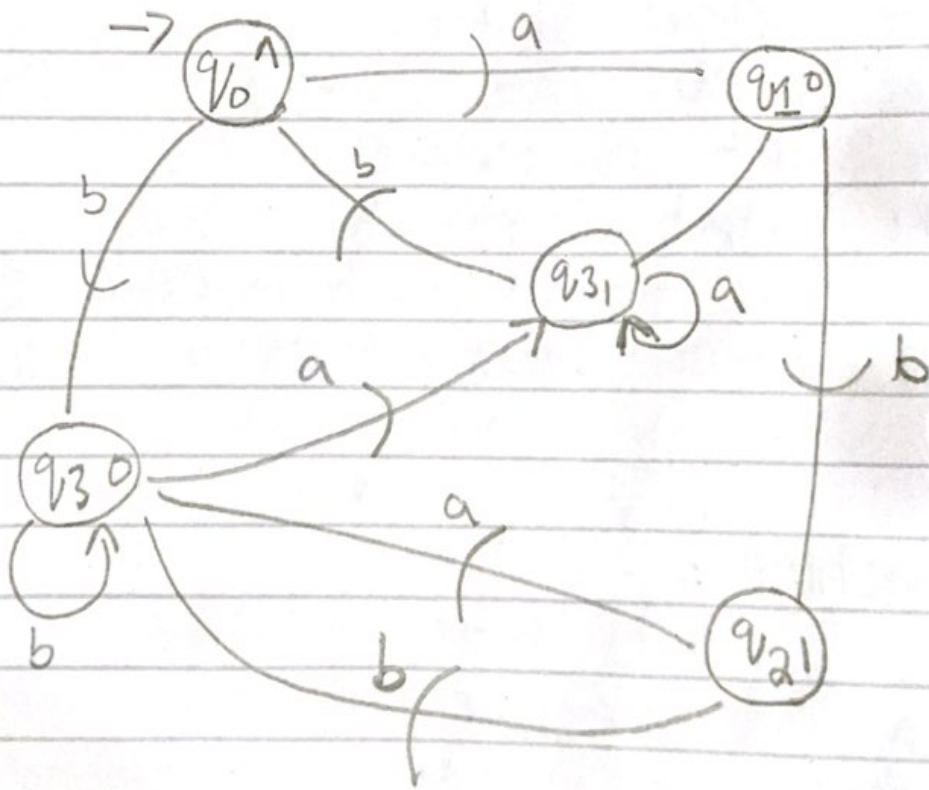 → q0^ a q1 0
b b
q3 1 a
a
q3 0 b
a
b b q2 1